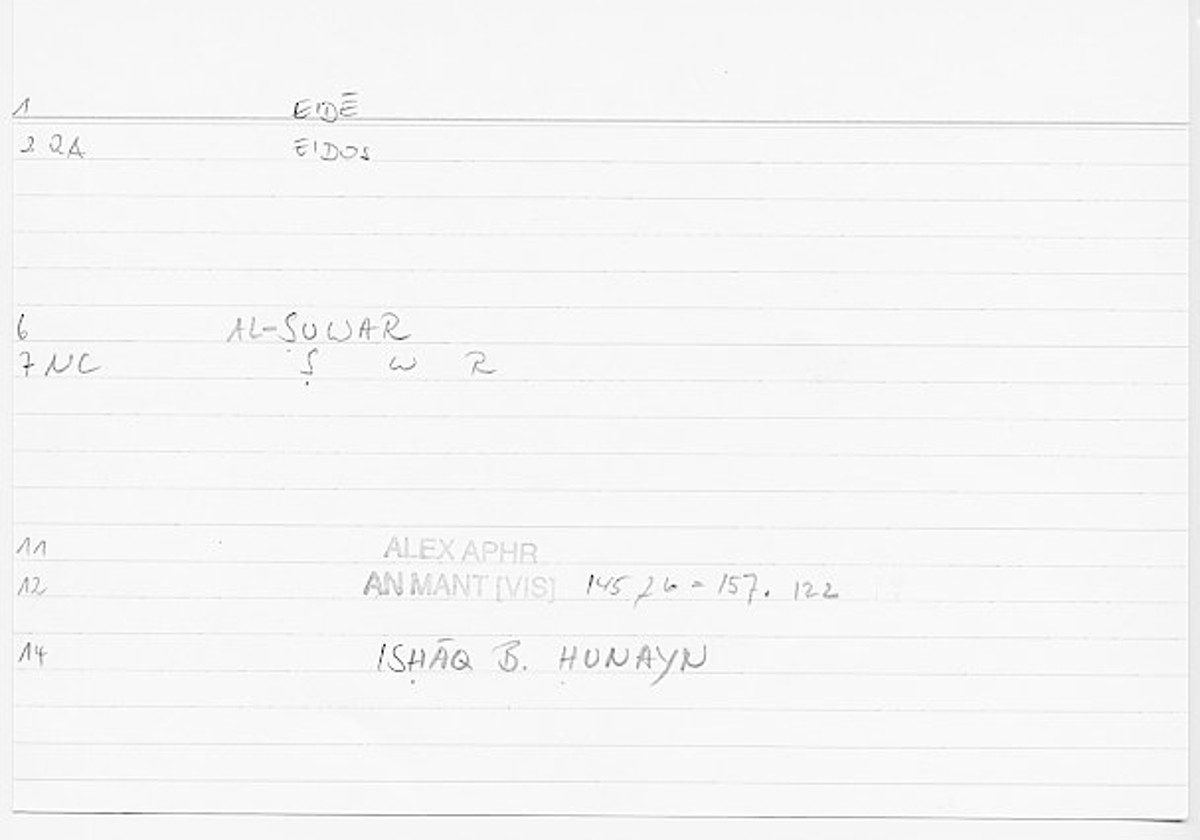 1 EIDĒ
2 QA EIDOS
6 AL-ṢUWAR
7 NC Ṣ W R
11 ALEX APHR
12 AN MANT [VIS] 145,26 = 157. 122
14 ISḤĀQ B. ḤUNAYN